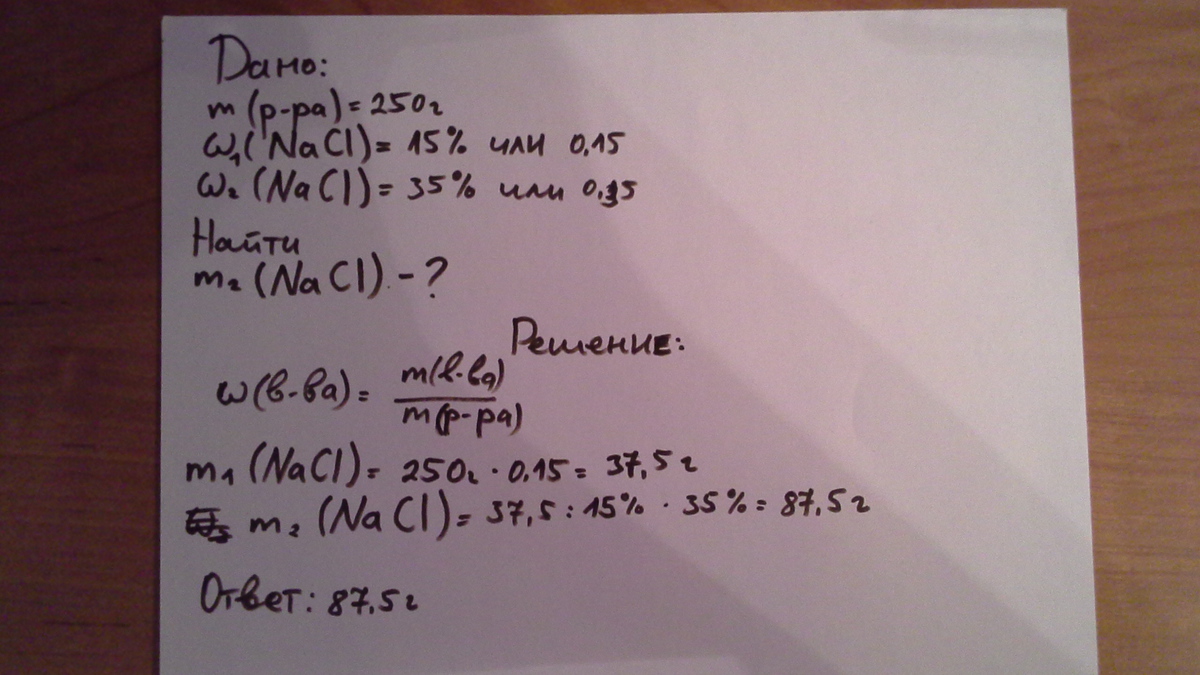 Дано:
m (р-ра) = 250г
ω₁(NaCl) = 15% или 0,15
ω₂ (NaCl) = 35% или 0,35
Найти
m₂ (NaCl) - ?
Решение:
ω(в-ва) = m(в-ва) / m(р-ра)
m₁ (NaCl) = 250г · 0,15 = 37,5 г
m₂ (NaCl) = 37,5 : 15% · 35% = 87,5 г
Ответ: 87,5 г